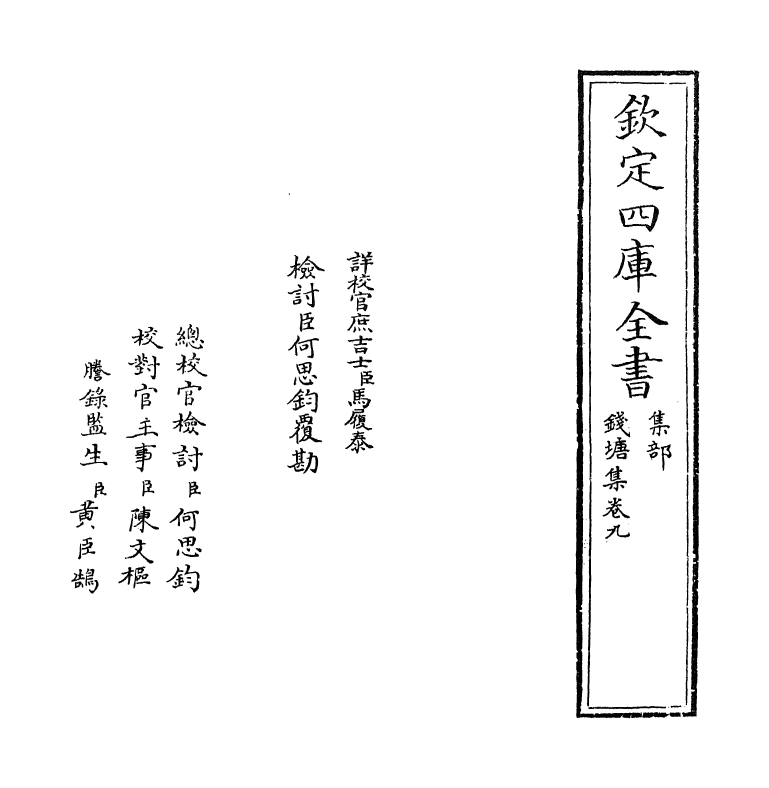 欽定四庫全書
集部
錢塘集卷九
詳校官庶吉士臣馬履泰
檢討臣何思鈞覆勘
總校官檢討臣何思鈞
校對官主事臣陳文樞
謄錄監生臣黃臣鵠